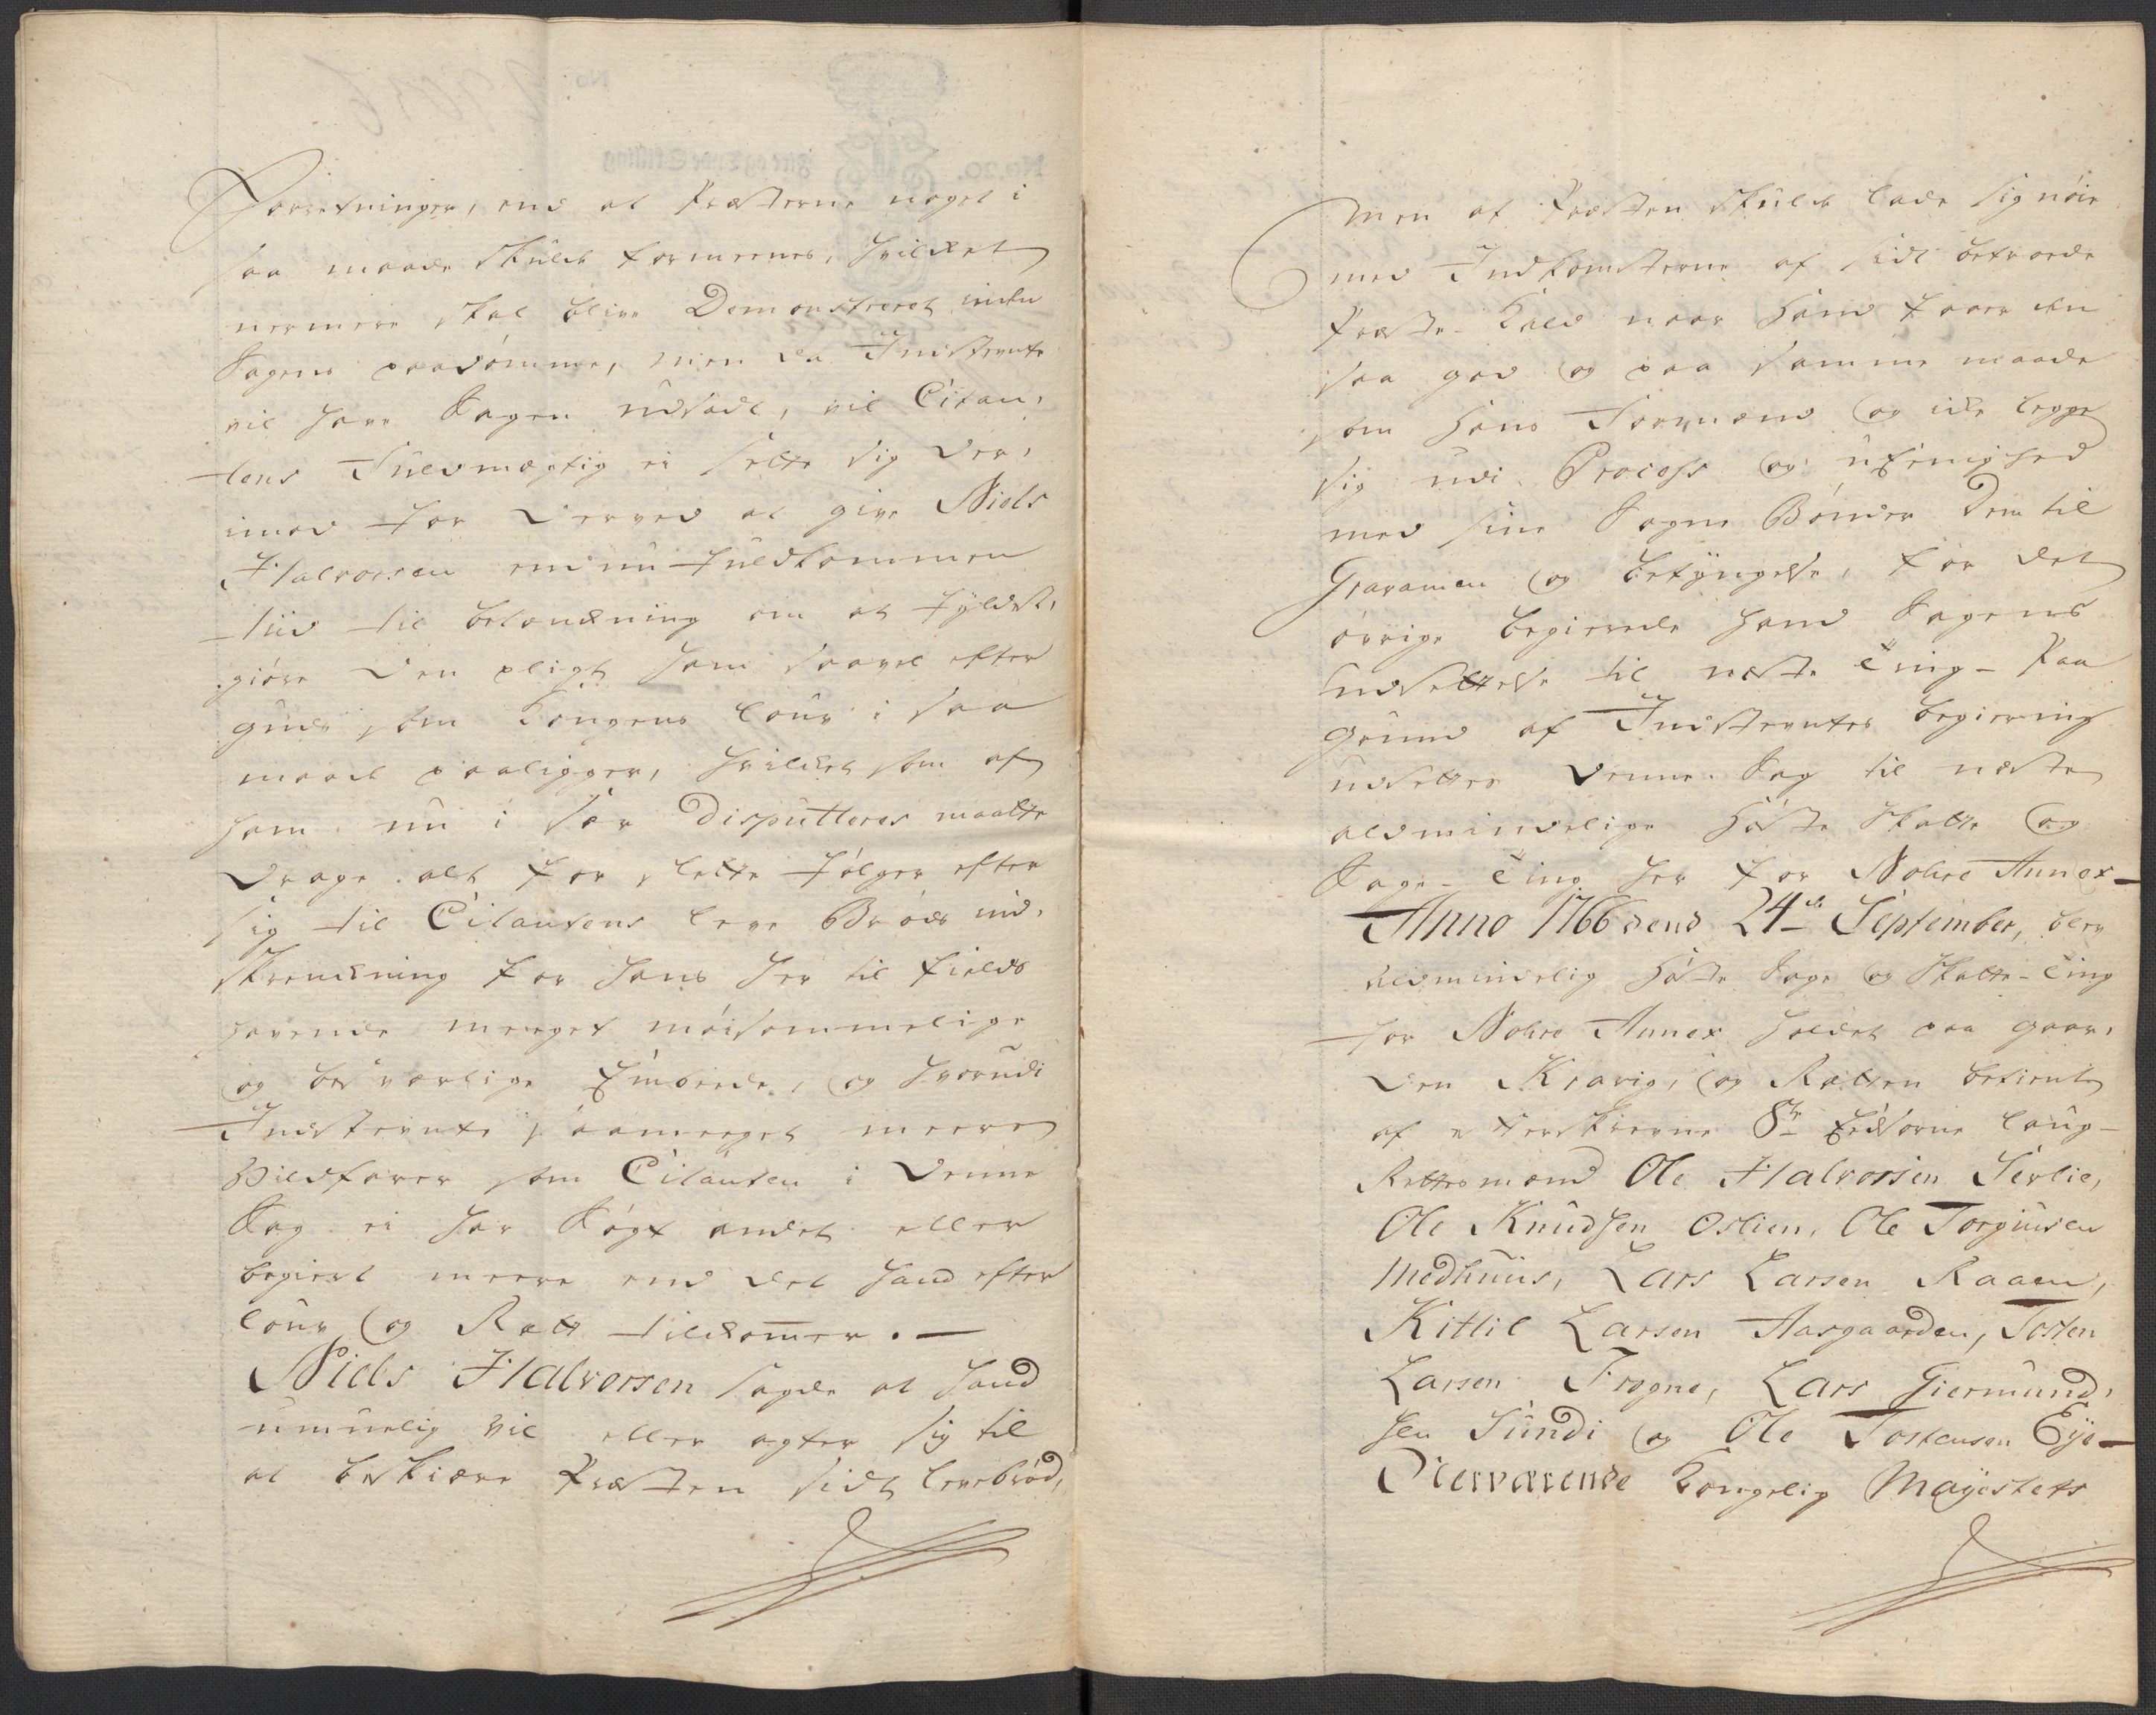 Forretninger, end at Præsterne noget i
saa maade skulde formeenes, hvilket
nermere skal blive Demonstreret inden
Sagens paadømme, men da Indstevnte
vil have Sagen udsadt, vil Citan,
tens Fuldmægtig ei sette sig der,
imod for derved at give Niels
Halvorsen endnu fuldkommen
tiid til betænkning om at fyldest,
giøre den pligt ham saavel efter
Guds som Kongens Louv i saa
maade paaligger, hvilket som af
ham nu i sær disputteres maatte
drage alt for slette følger efter
sig til Citantens leve Brøds ind,
skrenkning for hans her til fields
havende meeget møisommelige
og besværlige Embeede, og hvorudi
Indstevnte saameeget meere
Vildfarer som Citanten i denne
Sag ei har søgt andet eller
begiert meere end det hand efter
Louv og Rætt tilkommer. —
Niels Halvorsen sagde at hand
umuelig vil eller agter sig til
at beskiære Præsten sidt levebrød,
Men at Præsten skulde lade sig nøie
med Indkomsterne af sidt betroede
Præste-Kald naar hand faaer den
saa god og paa samme maade
som hans Formænd og ikke legge
sig udi Process og ueenighed
med sine Sogne Bønder dem til
Gravamen og betyngelse, for det
øvrige begierede hand Sagens
udsettelse til næste Ting - Paa
Grund af Indstevntes begiering
udsettes denne Sag til næste
aldmindelige Høste Skatte og
Sage-Ting her for Nohre Annex —
Anno 1766 dend 24de September, blev
aldmindelig Høste Sage og Skatte-Ting
for Nohre Annex holdet paa gaar,
den Kravig, og Rætten betient
af efterskrevne 8te Eedsorne Laug-
Rettesmænd Ole Halvorsen Terlie,
Ole Knudsen Oslien, Ole Torgiusen
Medhuus, Lars Larsen Raaen,
Kittil Larsen Aasgaarden, Tosten
Larsen Frogne, Lars Giermund,
sen Sundi og Ole Tostensen Eye —
Overværende Kongelig Mayestets